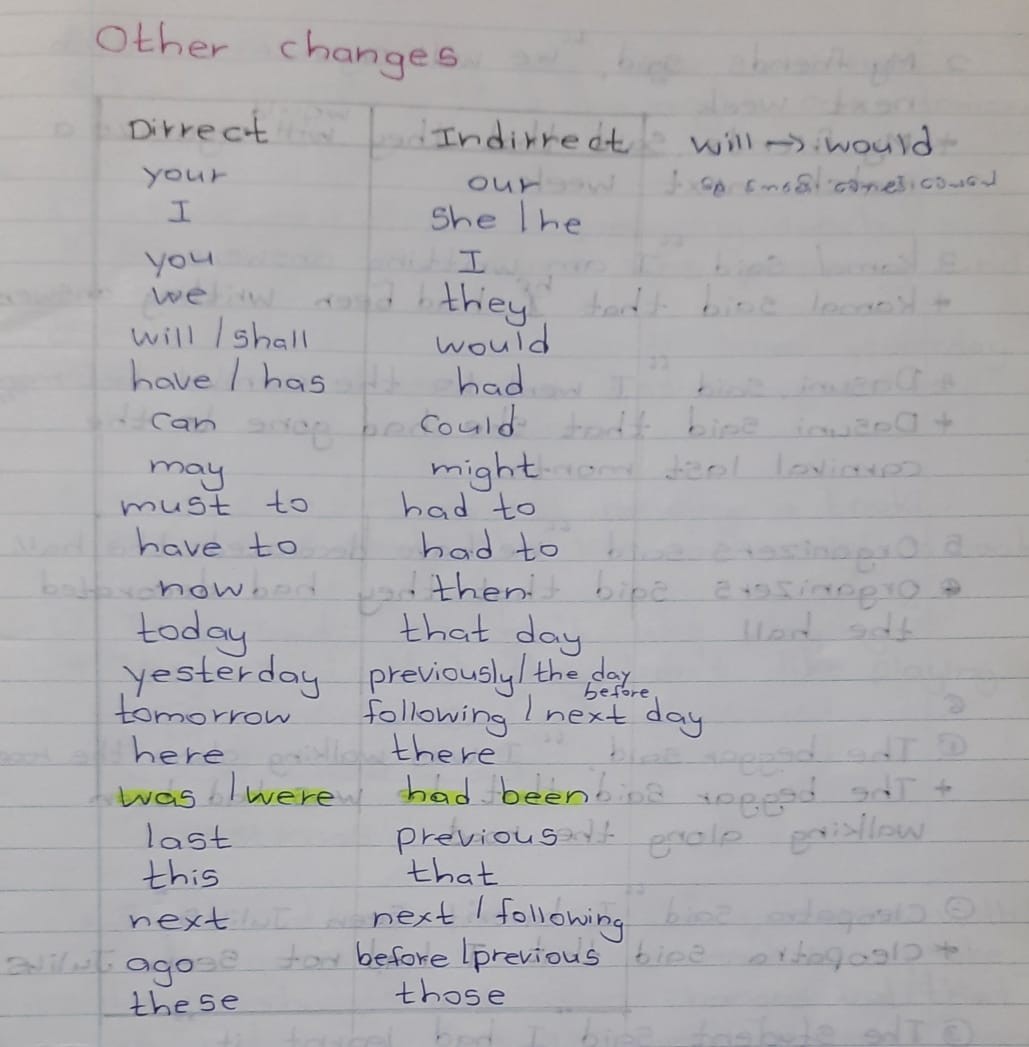 Other changes
Dirrect Indirrect will → would
your our
I she / he
you I
we they
will / shall would
have / has had
can could
may might
must to had to
have to had to
now then
today that day
yesterday previously / the day before
tomorrow following / next day
here there
was / were had been
last previous
this that
next next / following
ago before / previous
these those